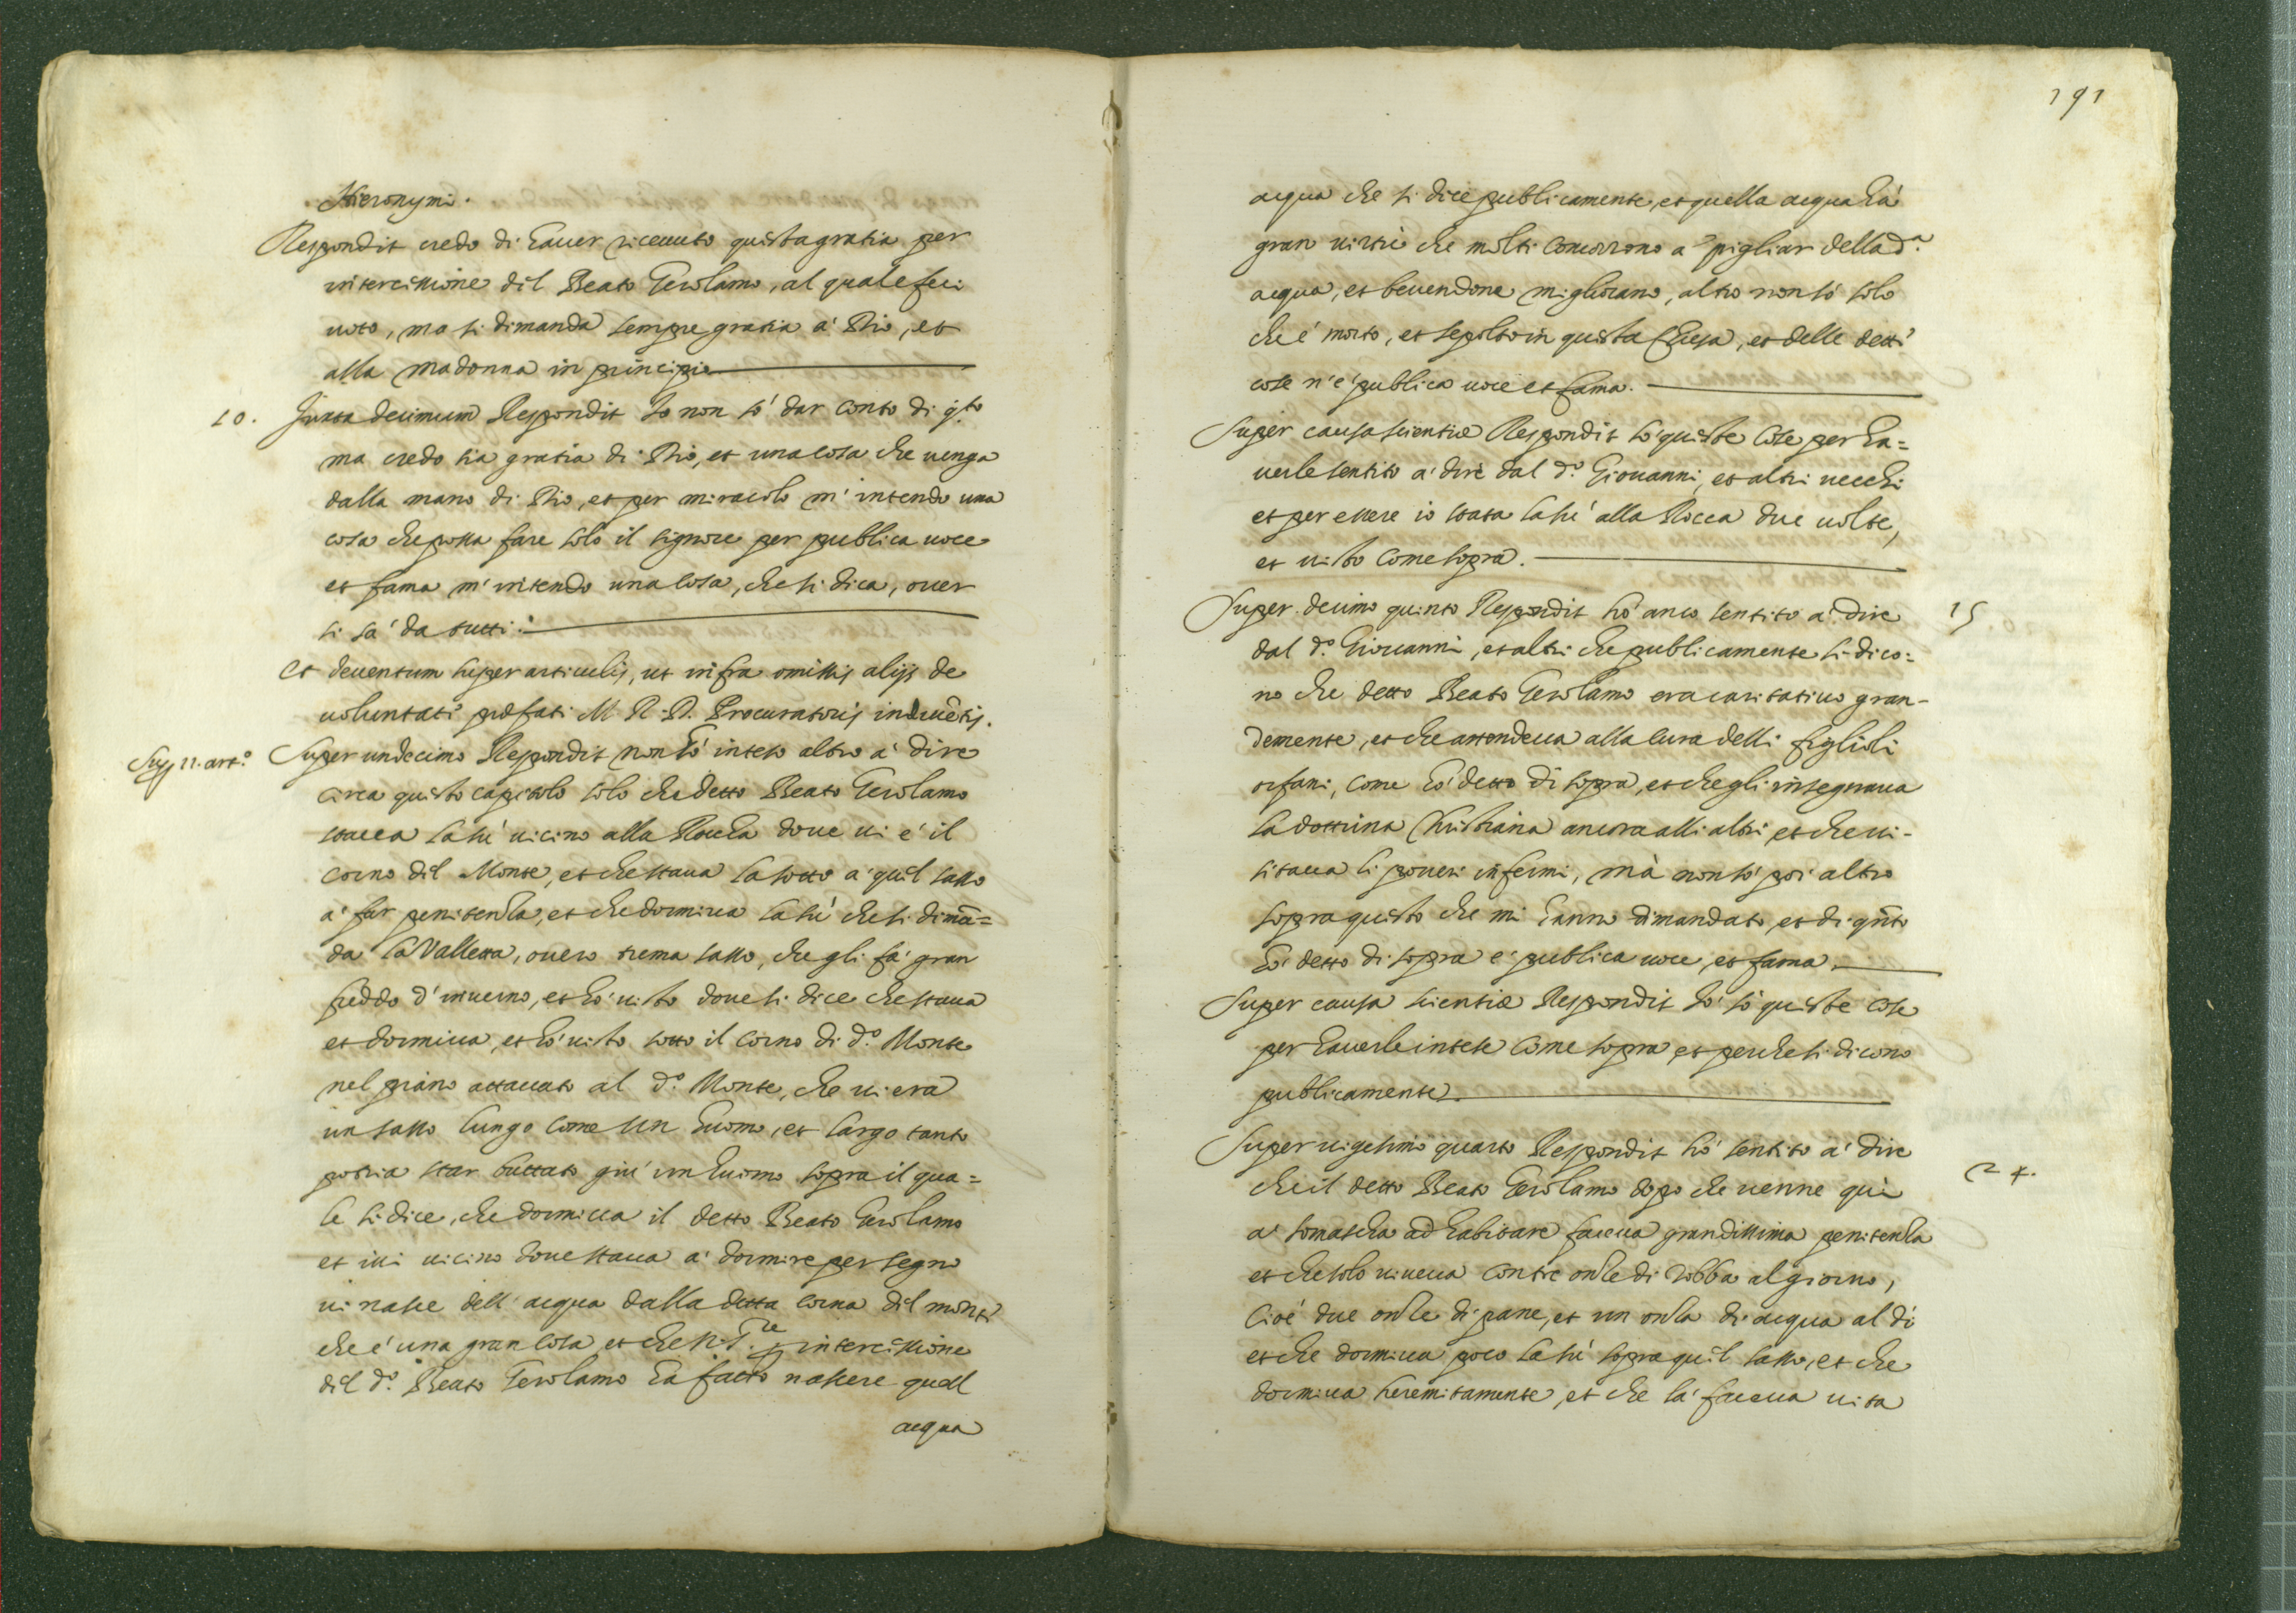 Hieronymi.
Respondit credo di hauer riceuuto questa gratia per
intercessione dil Beato Gerolamo, al quale feci
uoto, ma si dimanda sempre gratia a' Dio, et
alla madonna in principio
10. Juxta decimum Respondit Io non sò dar conto di q.to
ma credo sia gratia di Dio, et una cosa che uenga
dalla mano di Dio, et per miracolo m'intendo una
cosa che possa fare solo il signore per publica uoce
et fama m'intendo una cosa, che si dica, ouer
si sà da tutti.
Et deuentum super articulis, ut infra omissis alijs de
uoluntate præfati M. R. D. Procuratoris inductis.
Sup. 11. art.o Super undecimo Respondit non hò inteso altro a' dire
circa questo capitolo solo che detto Beato Gerolamo
staua la sù uicino alla Roccha doue ui è il
corno dil Monte, et che staua la sotto a' quel sasso
a' far penitenza, et che dormiua la sù che si dimã=
da la Valletta, ouero trema sasso, che gli fà gran
freddo d'inuerno, et hò uisto doue si dice che staua
et dormiua, et hò uisto sotto il corno di d.o Monte
nel piano attaccato al d.o Monte, che ui era
un sasso lungo come un huomo, et largo tanto
potria star buttato giù un huomo sopra il qua=
le si dice, che dormiua il detto Beato Gerolamo
et iui uicino doue staua a' dormire per segno
ui nasce dell'acqua dalla detta corna dil monte
che è una gran cosa, et che N. S.re per intercessione
dil d.o Beato Gerolamo hà fatto nascere quell
acqua
191
acqua che si dice publicamente, et quella acqua hà
gran uirtù che molti concorrono a pigliar della d.a
acqua, et beuendone migliorano, altro non sò solo
che è morto, et sepolto in questa Chiesa, et delle dette
cose n'è publica uoce et fama.
Super causa scientiæ Respondit sò queste cose per ha=
uerle sentito a' dire dal d.o Giouanni, et altri uecchi
et per essere io stata la sù alla Rocca due uolte,
et uisto come sopra.
Super decimo quinto Respondit hò anco sentito a' dire 15
dal d.o Giouanni, et altri che publicamente si dico=
no che detto Beato Gerolamo era caritatiuo gran-
demente, et che attendeua alla cura delli figlioli
orfani, come hò detto di sopra, et che gli insegnaua
la dottrina Christiana ancora alli altri, et che ui-
sitaua li poueri infermi, mà non sò poi altro
sopra questo che mi hanno dimandato, et di q.nto
hò detto di sopra è publica uoce, et fama.
Super causa scientiæ Respondit Io sò queste cose
per hauerle intese come sopra, et perche si dicono
publicamente.
Super uigesimo quarto Respondit hò sentito a' dire
che il detto Beato Gerolamo dopo che uenne quì 24.
a' Somascha ad habitare faceua grandissima penitenza
et che solo uiueua con tre onze di robba al giorno,
cioè due onze di pane, et un onza di acqua al dì
et che dormiua poco la sù sopra quel sasso, et che
dormiua heremitamente, et che la faceua uita